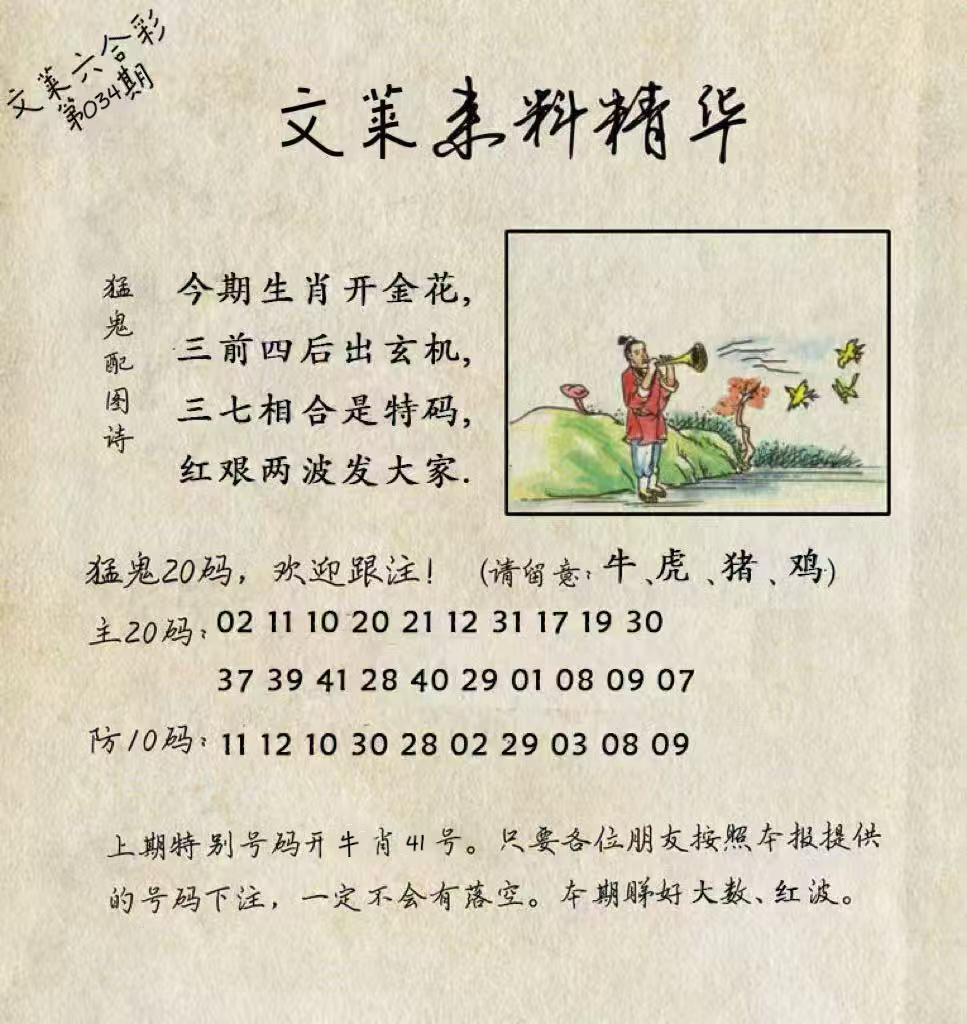 文莱六合彩
第034期
文莱来料精华
猛鬼配图诗
今期生肖开金花，
三前四后出玄机，
三七相合是特码，
红艰两波发大家.
猛鬼20码，欢迎跟注！（请留意：牛、虎、猪、鸡）
主20码：02 11 10 20 21 12 31 17 19 30
37 39 41 28 40 29 01 08 09 07
防10码：11 12 10 30 28 02 29 03 08 09
上期特别号码开牛肖41号。只要各位朋友按照本报提供
的号码下注，一定不会有落空。本期睇好大数、红波。